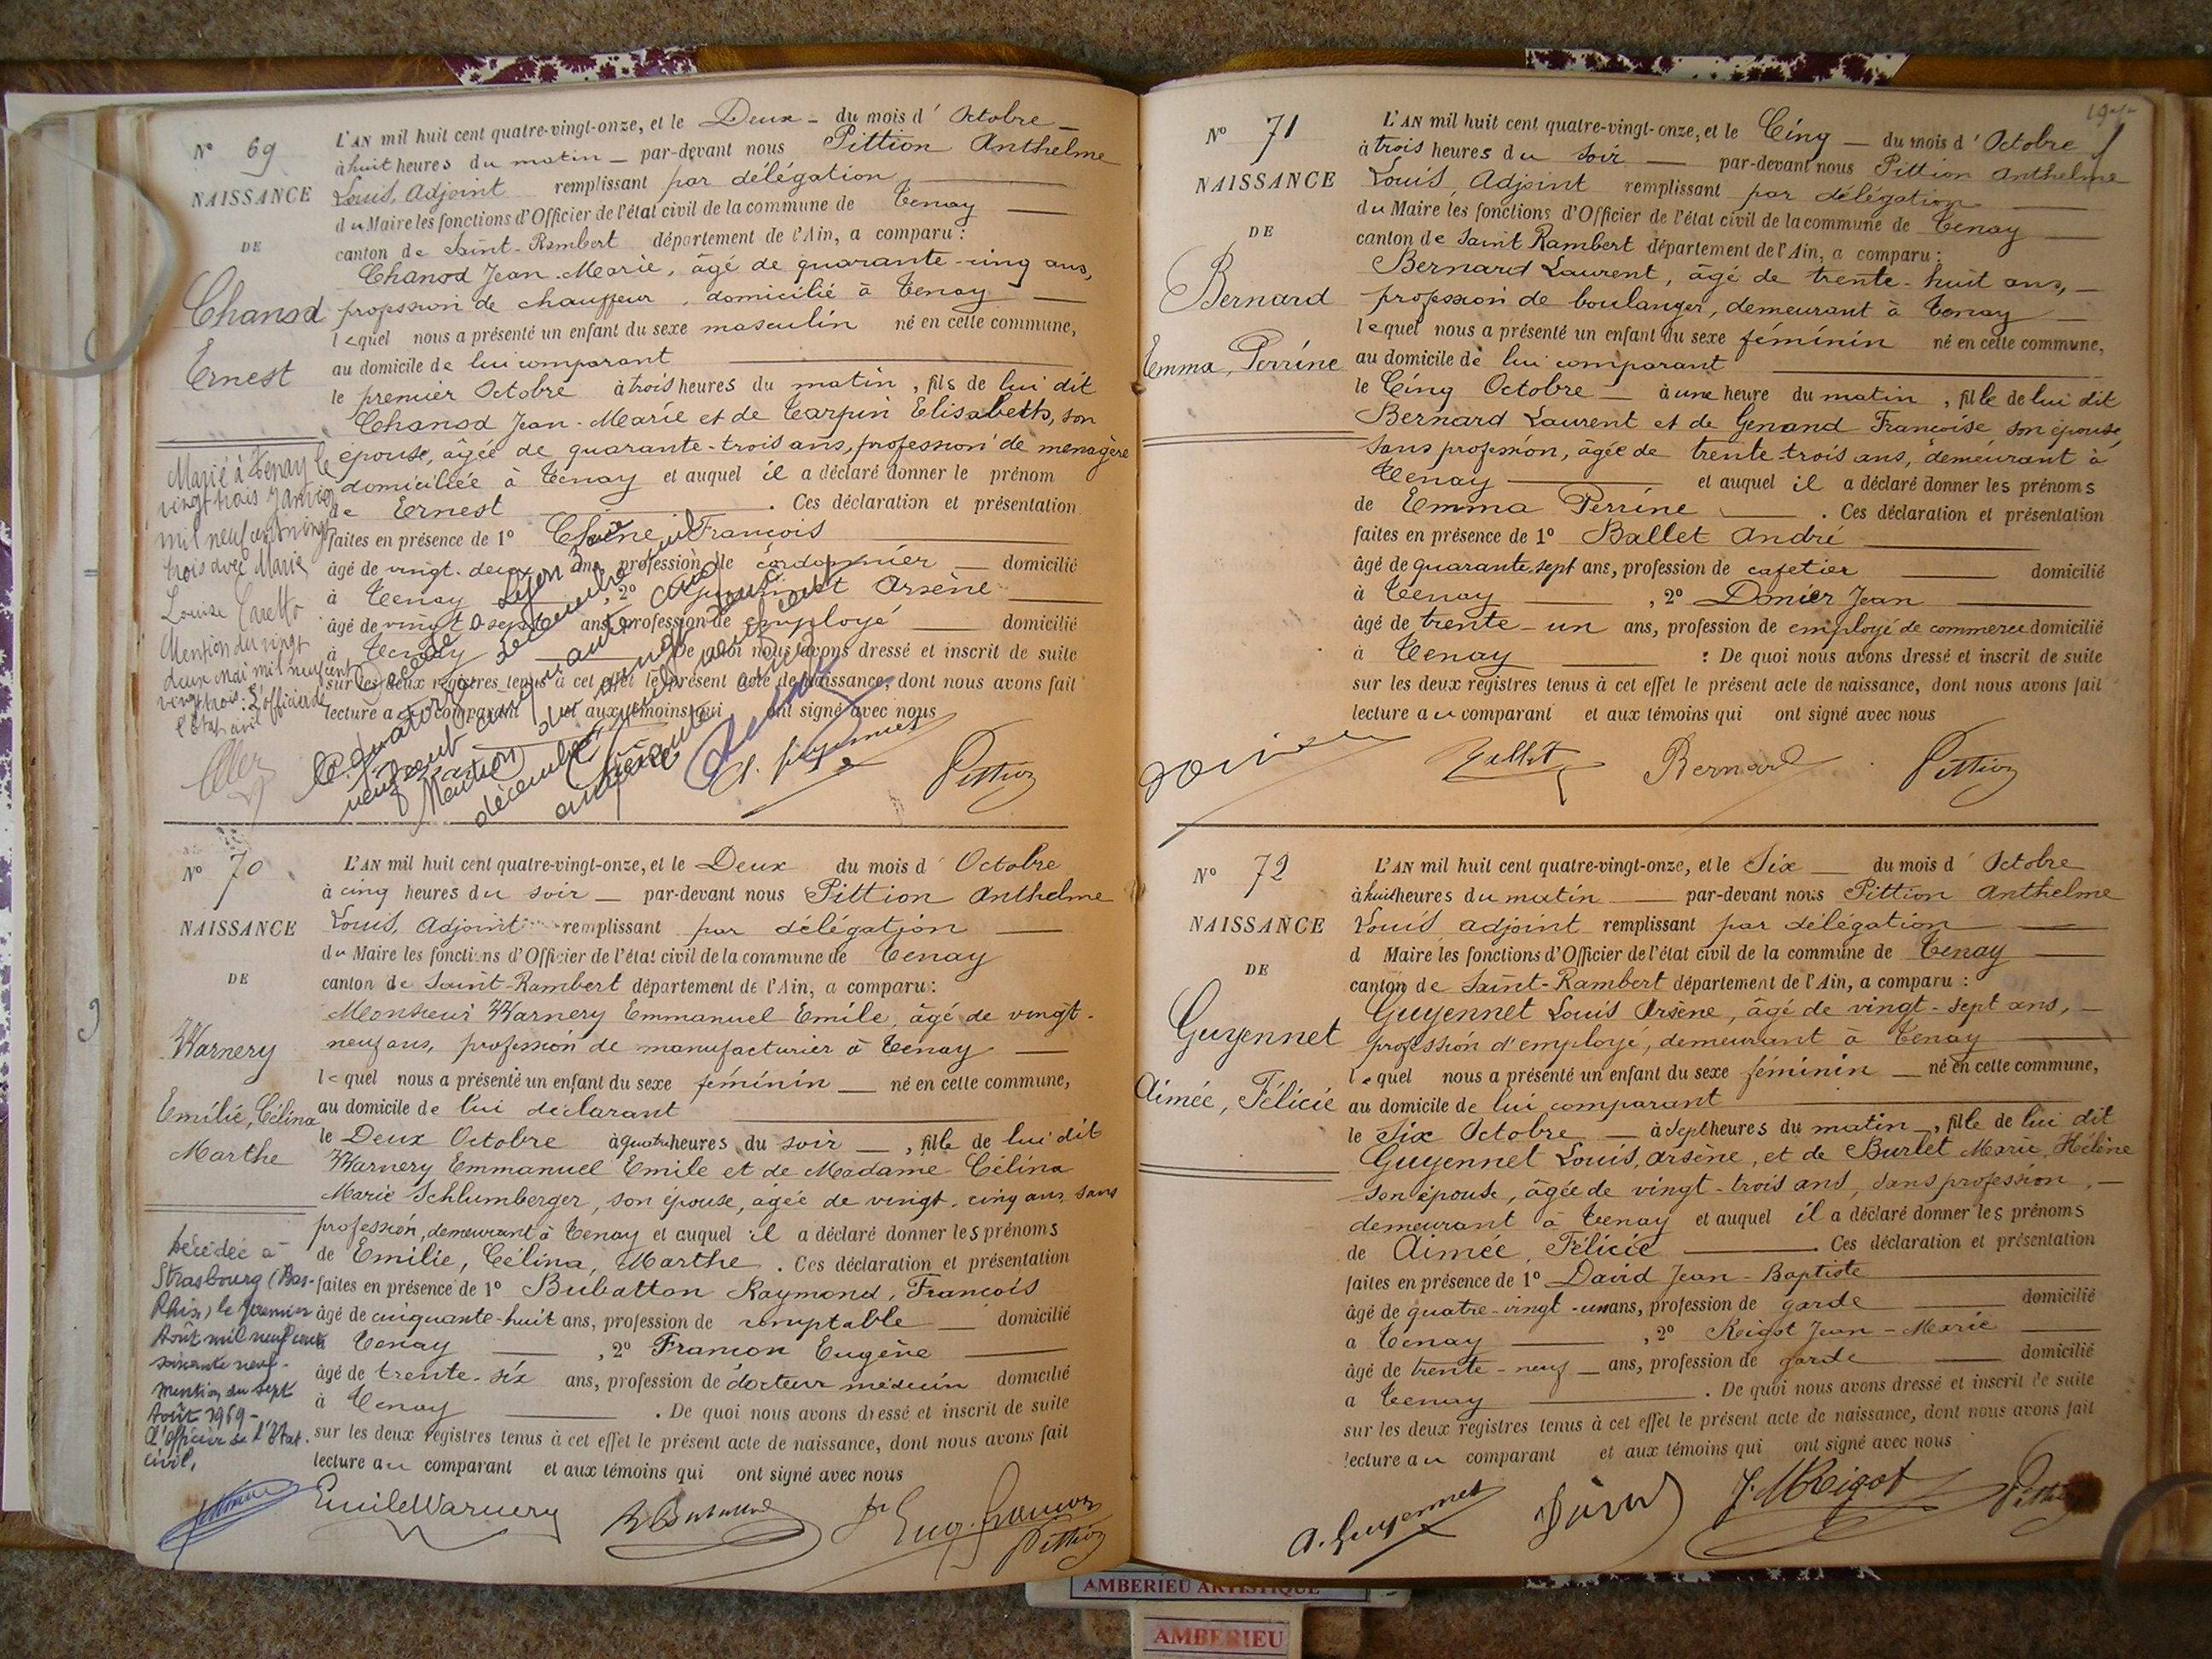 Nº 69
NAISSANCE
DE
Chanod
Ernest
L'AN mil huit cent quatre-vingt-onze, et le Deux du mois d'Octobre
à huit heures du matin par-devant nous Pittion Anthelme
Louis, Adjoint remplissant par délégation
du Maire les fonctions d'Officier de l'état civil de la commune de Tenay
canton de Saint-Rambert département de l'Ain, a comparu :
Chanod Jean-Marie, âgé de quarante-cinq ans,
profession de chauffeur, domicilié à Tenay
lequel nous a présenté un enfant du sexe masculin né en cette commune,
au domicile de lui comparant
le premier Octobre à trois heures du matin, fils de lui dit
Chanod Jean-Marie et de Tarpin Elisabeth, son
épouse, âgée de quarante-trois ans, profession de menagère
domiciliée à Tenay et auquel il a déclaré donner le prénom
de Ernest . Ces déclaration et présentation
faites en présence de 1º François
âgé de vingt-deux ans, profession de cordonnier domicilié
à Tenay , 2º Arsène
âgé de vingt-sept ans, profession de employé domicilié
à Tenay . De quoi nous avons dressé et inscrit de suite
sur les deux registres tenus à cet effet le présent acte de naissance, dont nous avons fait
lecture au comparant et aux témoins qui ont signé avec nous
Marié à Tenay le
vingt trois Janvier
mil neuf cent vingt
trois avec Marie
Louise Caretto
Mention du vingt
deux Mai mil neuf cent
vingt trois. L'officier de
l'état civil
Décédé à Lyon
le quatorze décembre mil
neuf cent cinquante cinq
Mention
décembre mil neuf cent
cinquante cinq
Pittion
Nº 70
NAISSANCE
DE
Warnery
Emilie, Célina
Marthe
L'AN mil huit cent quatre-vingt-onze, et le Deux du mois d'Octobre
à cinq heures du soir par-devant nous Pittion Anthelme
Louis, Adjoint remplissant par délégation
du Maire les fonctions d'Officier de l'état civil de la commune de Tenay
canton de Saint-Rambert département de l'Ain, a comparu :
Monsieur Warnery Emmanuel Emile, âgé de vingt-
neuf ans, profession de manufacturier à Tenay
lequel nous a présenté un enfant du sexe féminin né en cette commune,
au domicile de lui déclarant
le Deux Octobre à quatre heures du soir , fille de lui dit
Warnery Emmanuel Emile et de Madame Célina
Marie Schlumberger, son épouse, âgée de vingt-cinq ans, sans
profession, demeurant à Tenay et auquel il a déclaré donner les prénoms
de Emilie, Célina, Marthe . Ces déclaration et présentation
faites en présence de 1º Bubatton Raymond, François
âgé de cinquante-huit ans, profession de comptable domicilié
à Tenay , 2º Francon Eugène
âgé de trente-six ans, profession de docteur médecin domicilié
à Tenay . De quoi nous avons dressé et inscrit de suite
sur les deux registres tenus à cet effet le présent acte de naissance, dont nous avons fait
lecture au comparant et aux témoins qui ont signé avec nous
Décédée à
Strasbourg (Bas-
Rhin) le premier
Août mil neuf cent
soixante neuf-
Mention du sept
Août 1969-
L'officier de l'Etat
civil,
Emile Warnery
Pittion
Nº 71
NAISSANCE
DE
Bernard
Emma, Perrine
L'AN mil huit cent quatre-vingt-onze, et le Cinq du mois d'Octobre
à trois heures du soir par-devant nous Pittion Anthelme
Louis, Adjoint remplissant par délégation
du Maire les fonctions d'Officier de l'état civil de la commune de Tenay
canton de Saint Rambert département de l'Ain, a comparu :
Bernard Laurent, âgé de trente-huit ans,
profession de boulanger, demeurant à Tenay
lequel nous a présenté un enfant du sexe féminin né en cette commune,
au domicile de lui comparant
le Cinq Octobre à une heure du matin , fille de lui dit
Bernard Laurent et de Genand Françoise son épouse,
sans profession, âgée de trente-trois ans, demeurant à
Tenay et auquel il a déclaré donner les prénoms
de Emma Perrine . Ces déclaration et présentation
faites en présence de 1º Ballet André
âgé de quarante-sept ans, profession de cafetier domicilié
à Tenay , 2º Donier Jean
âgé de trente-un ans, profession de employé de commerce domicilié
à Tenay : De quoi nous avons dressé et inscrit de suite
sur les deux registres tenus à cet effet le présent acte de naissance, dont nous avons fait
lecture au comparant et aux témoins qui ont signé avec nous
Bernard Pittion
Nº 72
NAISSANCE
DE
Guyennet
Aimée, Félicie
L'AN mil huit cent quatre-vingt-onze, et le Six du mois d'Octobre
à huit heures du matin par-devant nous Pittion Anthelme
Louis adjoint remplissant par délégation
d Maire les fonctions d'Officier de l'état civil de la commune de Tenay
canton de Saint-Rambert département de l'Ain, a comparu :
Guyennet Louis Arsène, âgé de vingt-sept ans,
profession d'employé, demeurant à Tenay
lequel nous a présenté un enfant du sexe féminin né en cette commune,
au domicile de lui comparant
le Six Octobre à sept heures du matin , fille de lui dit
Guyennet Louis, Arsène, et de Burlet Marie, Hélène
son épouse, âgée de vingt-trois ans, sans profession,
demeurant à Tenay et auquel il a déclaré donner les prénoms
de Aimée, Félicie . Ces déclaration et présentation
faites en présence de 1º David Jean-Baptiste
âgé de quatre-vingt-un ans, profession de garde domicilié
à Tenay , 2º Reigot Jean-Marie
âgé de trente-neuf ans, profession de garde domicilié
à Tenay . De quoi nous avons dressé et inscrit de suite
sur les deux registres tenus à cet effet le présent acte de naissance, dont nous avons fait
lecture au comparant et aux témoins qui ont signé avec nous
A. Guyennet David J. M Reigot Pittion
AMBERIEU ARTISTIQUE
AMBERIEU